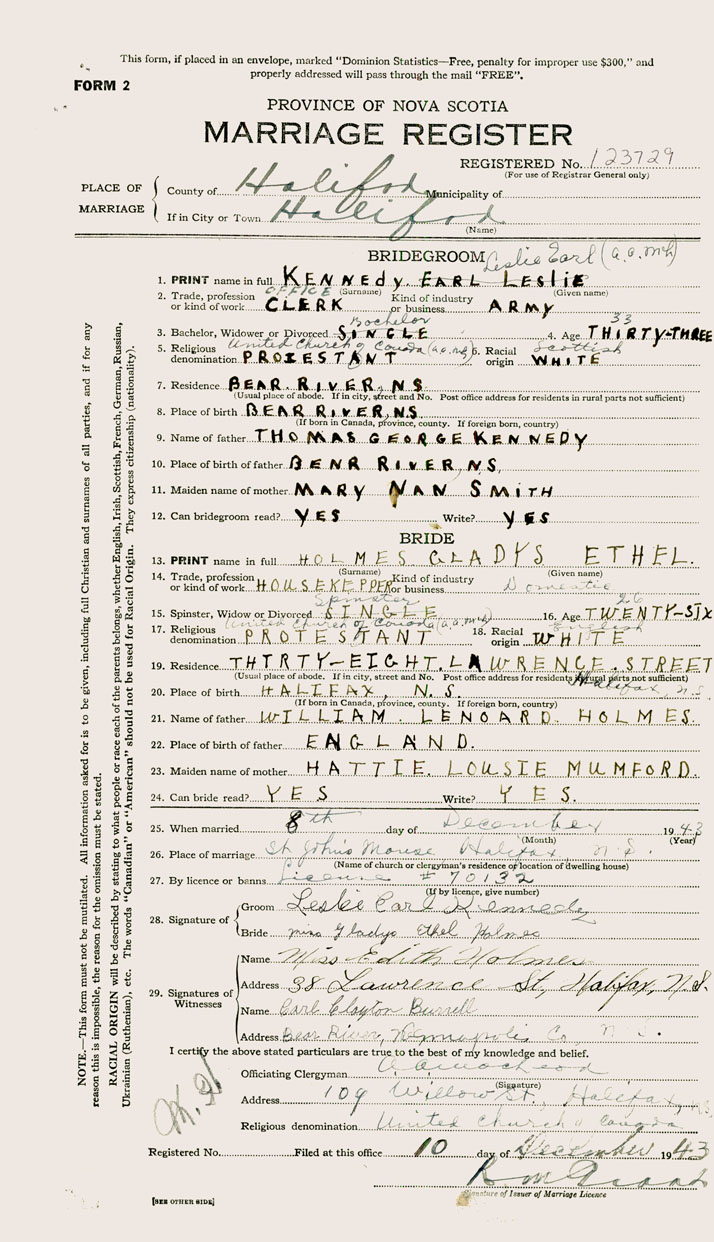 This form, if placed in an envelope, marked "Dominion Statistics—Free, penalty for improper use $300," and
properly addressed will pass through the mail "FREE".
FORM 2
PROVINCE OF NOVA SCOTIA
MARRIAGE REGISTER
REGISTERED No. 123729
(For use of Registrar General only)
PLACE OF MARRIAGE
County of Halifax Municipality of
If in City or Town Halifax
(Name)
BRIDEGROOM Leslie Earl (a.a. McL)
1. PRINT name in full KENNEDY EARL LESLIE
(Surname) (Given name)
OFFICE
2. Trade, profession or kind of work CLERK Kind of industry or business ARMY
Bachelor 33
3. Bachelor, Widower or Divorced SINGLE 4. Age THIRTY-THREE
United Church of Canada Scottish
5. Religious denomination PROTESTANT 6. Racial origin WHITE
7. Residence BEAR RIVER, NS
(Usual place of abode. If in city, street and No. Post office address for residents in rural parts not sufficient)
8. Place of birth BEAR RIVER, NS
(If born in Canada, province, county. If foreign born, country)
9. Name of father THOMAS GEORGE KENNEDY
10. Place of birth of father BEAR RIVER, NS,
11. Maiden name of mother MARY NAN SMITH
12. Can bridegroom read? YES Write? YES
BRIDE
13. PRINT name in full HOLMES GLADYS ETHEL.
(Surname) (Given name)
14. Trade, profession or kind of work HOUSEKEPPER Kind of industry or business Domestic
Spinster 26
15. Spinster, Widow or Divorced SINGLE 16. Age TWENTY-SIX
United Church of Canada English
17. Religious denomination PROTESTANT 18. Racial origin WHITE
19. Residence THIRTY-EIGHT. LAWRENCE. STREET
(Usual place of abode. If in city, street and No. Post office address for residents in rural parts not sufficient)
Halifax, N.S.
20. Place of birth HALIFAX, N.S.
(If born in Canada, province, county. If foreign born, country)
21. Name of father WILLIAM. LENOARD. HOLMES.
22. Place of birth of father ENGLAND.
23. Maiden name of mother HATTIE. LOUSIE MUMFORD.
24. Can bride read? YES Write? YES.
25. When married 8th day of December 1943
(Month) (Year)
26. Place of marriage St John's Manse Halifax, N.S.
(Name of church or clergyman's residence or location of dwelling house)
27. By licence or banns Licence # 70132
(If by licence, give number)
28. Signature of
Groom Leslie Earl Kennedy
Bride miss Gladys Ethel Holmes
29. Signatures of Witnesses
Name Miss Edith Holmes
Address 38 Lawrence St., Halifax, N.S.
Name Earl Clayton Burrell
Address Bear River, Annapolis Co. N.S.
I certify the above stated particulars are true to the best of my knowledge and belief.
Officiating Clergyman
(Signature)
Address 109 Willow St., Halifax, N.S.
Religious denomination United Church of Canada
Registered No. Filed at this office 10 day of December 1943
Signature of Issuer of Marriage Licence
[SEE OTHER SIDE]
NOTE.—This form must not be mutilated. All information asked for is to be given, including full Christian and surnames of all parties, and if for any
reason this is impossible, the reason for the omission must be stated.
RACIAL ORIGIN will be described by stating to what people or race each of the parents belongs, whether English, Irish, Scottish, French, German, Russian,
Ukrainian (Ruthenian), etc. The words "Canadian" or "American" should not be used for Racial Origin. They express citizenship (nationality).